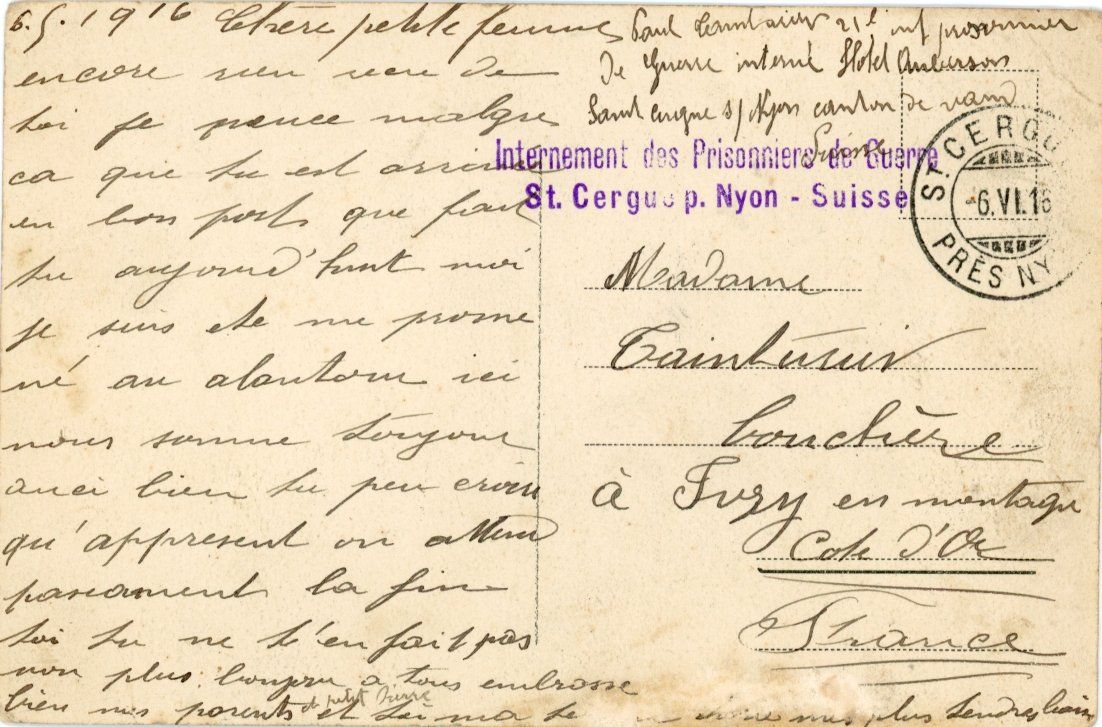 6.5 1916 Chère petite femme
encore rien recu de
toi je pence malgre
ca que tu est arrivé
en bon port que fait
tu aujourd'huit moi
je suis ete me prome
né au alantour ici
nous somme toujour
auci bien tu peu croire
qu'appresent on attend
paseament la fin
toi tu ne t'en fait pas
non plus bonjour a tous embrasse
bien mes parents et petit Pierre et toi ma mes plus tendre
Paul Tainturier 21e inf prisonnier
De Guerre interné Hotel Auberson
Saint cergue s/Nyon canton de vaud
Suisse
Internement des Prisonniers de Guerre
St. Cergue p. Nyon - Suisse
ST. CERGUE
-6.VI.16
PRÈS NY
Madame
Tainturier
bouchère
à Ivry en montagne
Cote d'Or
France